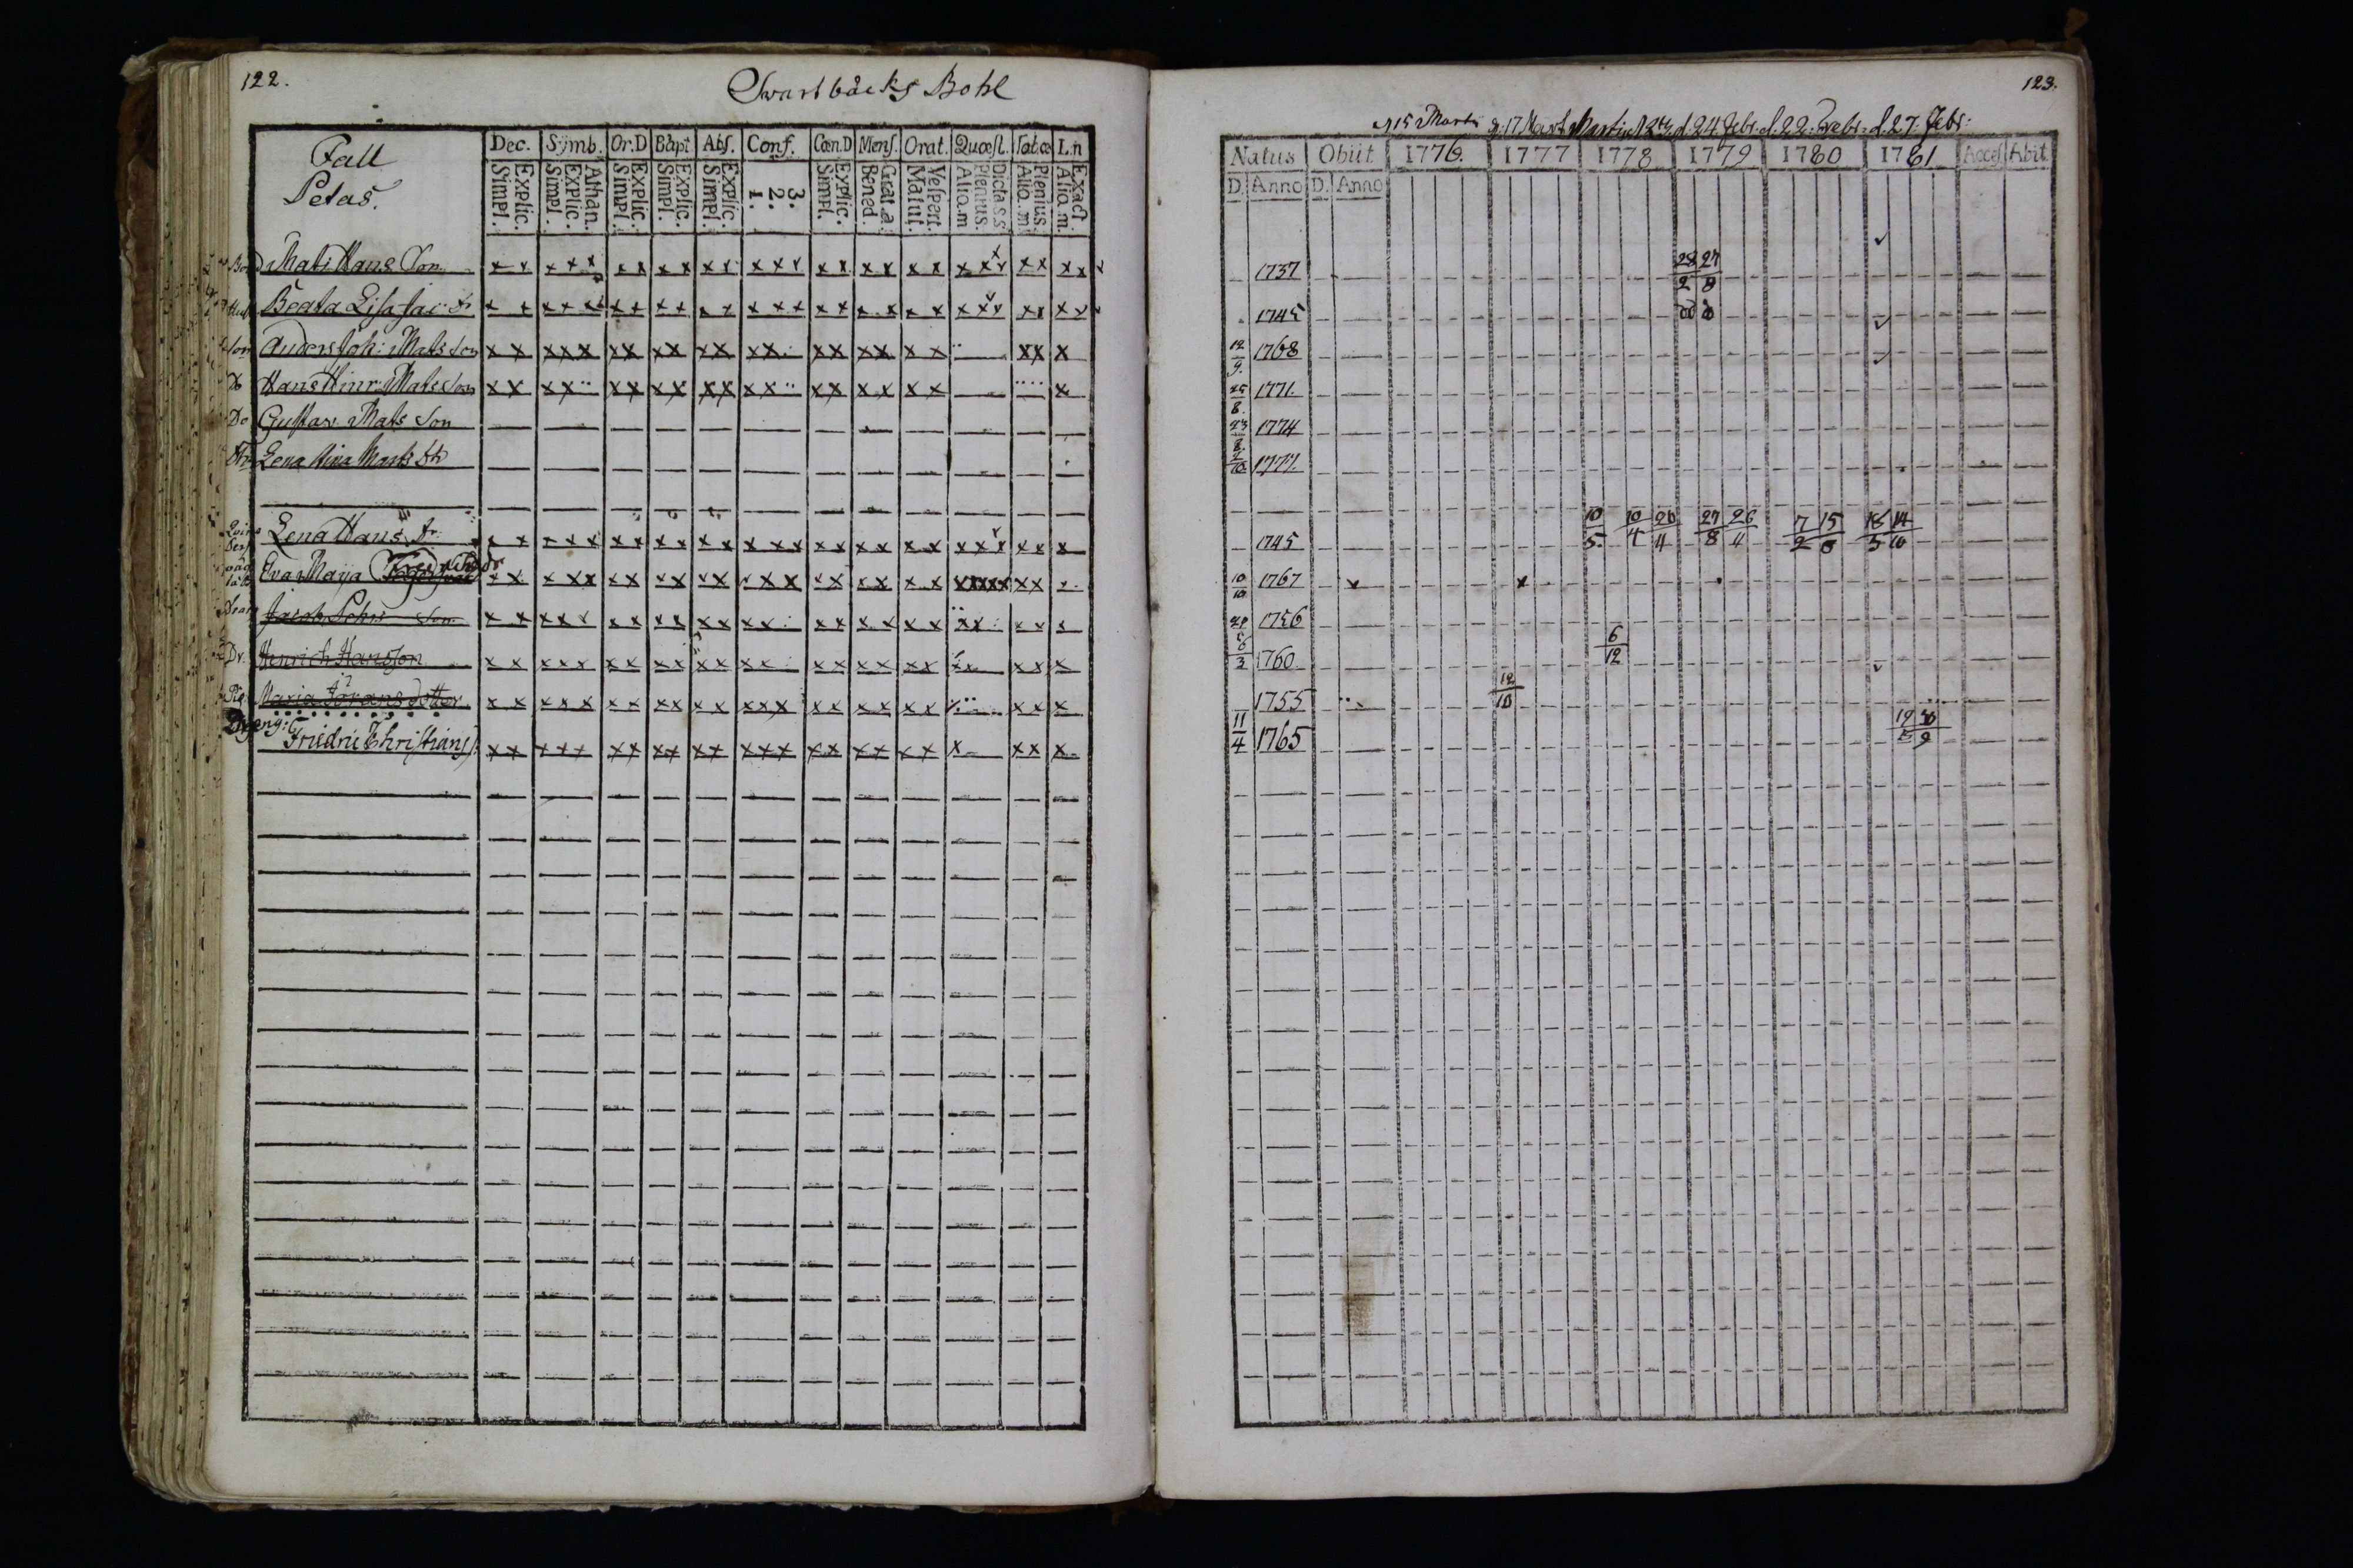 122.
Swartbäcks Bohl
Fall
Petas.
Dec. Symb. Or.D Bapt. Abs. Conf. Cœn.D Mens. Orat. Quæst. Tabb.œ L.n
Explic. Simpl. Athan. Explic. Simpl. Explic. Simpl. Explic. Simpl. Explic. Simpl. 3. 2. 1. Explic. Simpl. Grat. a. Bened. Vespert. Matut. Dicta s.s Plenius. Aliq.m Plenius. Aliq.m Exact. Aliq.m
Bond Mats Hans Son
Hust Beata Lisa Jac: dr
Son Anders Joh: Mats Son
Do Hans Hinr: Mats Son
Do Gustav Mats Son
Dr Lena Stina Mats dtr
Lena Hans dr
Eva Maija
Jacob Son
Dr. Henrich Hansson
Pig. Maria Jörans dotter
Dreng: Friedric Christians
123.
d 15 Martii d. 17 Mart Martii d. 24 Febr. d. 22. Febr. d. 27. Febr:
Natus Obiit 1776. 1777 1778 1779 1780 1781 Acces. Abit
D. Anno D. Anno
1737 28/2 29/8
1745
12/9. 1768
25/8. 1771.
23/8. 1774
2/10. 1777.
1745 10/5. 10/4 20/11 29/8 26/11 7/2 15/8 18/5 14/10
10/10 1767
1756
6/3 1760 6/12
1755 12/10
11/4 1765 19/5 30/9